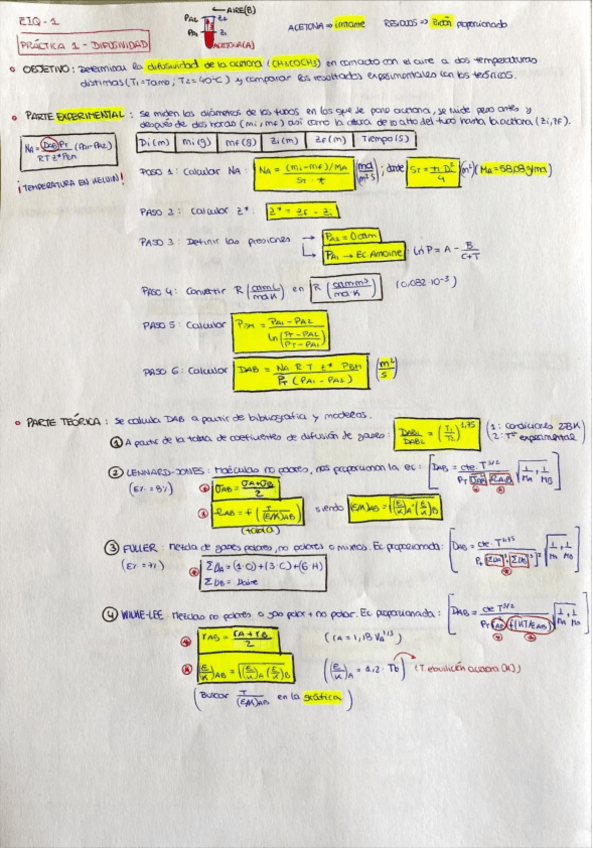 EIQ-1
← AIRE(B)
PA2 Z2
PA1 Z1
ACETONA(A)
ACETONA ⇒ inflame RESIDUOS ⇒ Bidón proporcionado
PRÁCTICA 1 - DIFUSIVIDAD
• OBJETIVO: Determinar la difusividad de la acetona (CH3COCH3) en contacto con el aire a dos temperaturas
distintas (T1=Tamb, T2=40ºC) y comparar los resultados experimentales con los teóricos.
• PARTE EXPERIMENTAL: Se miden los diámetros de los tubos en los que se pone acetona, se mide peso antes y
después de dos horas (mi, mf) así como la altura de lo alto del tubo hasta la acetona (zi, zf).
NA = DAB PT / RT z* PBM (PA1-PA2)
¡TEMPERATURA EN KELVIN!
Di(m) mi(g) mf(g) Zi(m) ZF(m) Tiempo(s)
PASO 1: Calcular NA: NA = (mi-mf)/MA / ST · t (mol/m²s); donde ST = π D² / 4 (m²) (MA=58,08 g/mol)
PASO 2: Calcular z*: z* = zf - zi
PASO 3: Definir las presiones → PA2 = 0 atm
→ PA1 → Ec Antoine: ln P = A - B/C+T
PASO 4: Convertir R (atm·L/mol·K) en R (atm·m³/mol·K) (0,082·10⁻³)
PASO 5: Calcular PBM = PA1 - PA2 / ln (PT-PA2 / PT-PA1)
PASO 6: Calcular DAB = NA R T z* PBM / PT (PA1-PA2) (m²/s)
• PARTE TEÓRICA: Se calcula DAB a partir de bibliografía y modelos.
① A partir de la tabla de coeficientes de difusión de gases: DAB1/DAB2 = (T1/T2)^1,75 (1: condiciones 273K
2: Tª experimental)
② LENNARD-JONES: Moléculas no polares, nos proporcionan la ec: [DAB = cte·T^3/2 / PT σAB² ΩAB √1/MA + 1/MB]
(E% = 8%) ① σAB = σA+σB / 2
② ΩAB = f (T/(E/K)AB) siendo (E/K)AB = √(E/K)A·(E/K)B
(tabla)
③ FULLER: Mezcla de gases polares, no polares o mixtos. Ec proporcionada: [DAB = cte·T^1,75 / PT [ΣDA^1/3 + ΣDB^1/3]² √1/MA + 1/MB]
(E% = 7%) ΣDA = (1·O)+(3·C)+(6·H)
ΣDB = Daire
④ WILKE-LEE: Mezclas no polares o gas polar + no polar. Ec proporcionada: [DAB = cte T^3/2 / PT rAB² f(KT/EAB) √1/MA + 1/MB]
rAB = rA + rB / 2 (rA = 1,18 VA^1/3)
(E/K)AB = √(E/K)A (E/K)B ((E/K)A = 1,2·Tb) (T ebullición acetona (K))
(Buscar T/(E/K)AB en la gráfica)